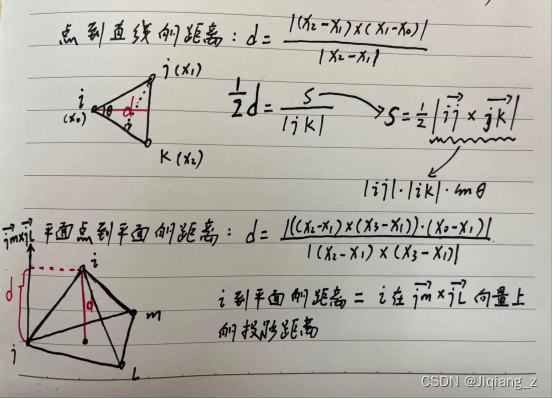 点到直线的距离: d = |(x₂-x₁)×(x₁-x₀)| / |x₂-x₁|
j (x₁)
i (x₀) θ d
k (x₂)
½d = S / |jk|
S = ½|ij × jk|
|ij|·|ik|·sinθ
jm×jL
平面点到平面的距离: d = |((x₂-x₁)×(x₃-x₁))·(x₀-x₁)| / |(x₂-x₁)×(x₃-x₁)|
i
d
d
m
j
L
i 到平面的距离 = i 在 jm × jL 向量上
的投影距离
CSDN @Jiqiang_z